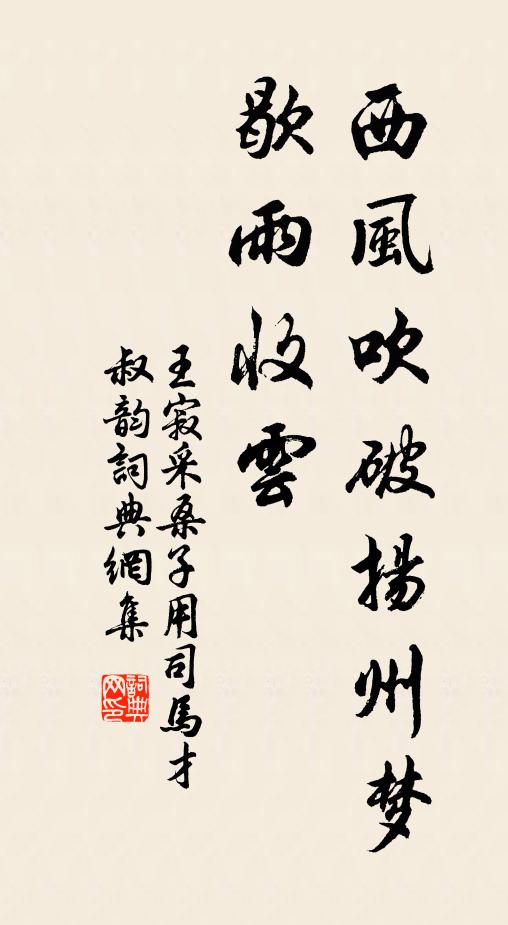 西風吹破揚州梦
歇雨收雲
王寂采桑子用司馬才
叔韵詞典網集
詞典
网印